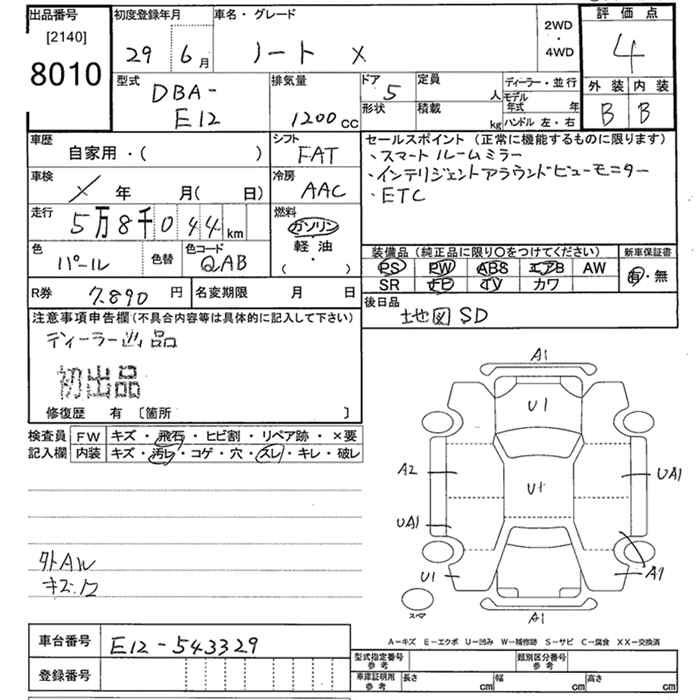 出品番号
[2140]
8010
初度登録年月
29 6月
車名・グレード
ノート X
2WD
・
4WD
評価点
4
外装 内装
B B
型式
DBA-
E12
排気量
1200 CC
ドア
5
定員
人
形状
積載
kg
ディーラー・並行
モデル
年式 年
ハンドル 左・右
車歴
自家用・( )
シフト
FAT
車検
年 月( 日)
冷房
AAC
走行
5万8千044 km
燃料
ガソリン
軽油
( ・ )
色
パール
色替
色コード
QAB
セールスポイント (正常に機能するものに限ります)
・スマートルームミラー
・インテリジェントアラウンドビューモニター
・ETC
装備品 (純正品に限り○をつけてください)
新車保証書
PS PW ABS エアB AW
SR ナビ TV カワ
有・無
R券
7.890 円
名変期限 月 日
後日品
地図SD
注意事項申告欄(不具合内容等は具体的に記入して下さい)
ディーラー出品
初出品
修復歴 有 〔箇所 〕
検査員
記入欄
FW キズ・飛石・ヒビ割・リペア跡・×要
内装 キズ・汚レ・コゲ・穴・スレ・キレ・破レ
外AW
キズ
A1
U1
U1
A2
UA1
UA1
U1
A1
A1
スペア
A－キズ E－エクボ U－凹み W－補修跡 S－サビ C－腐食 XX－交換済
車台番号
E12-543329
登録番号
型式指定番号
参考
類別区分番号
参考
車庫証明用
参考
長さ cm
幅 cm
高さ cm